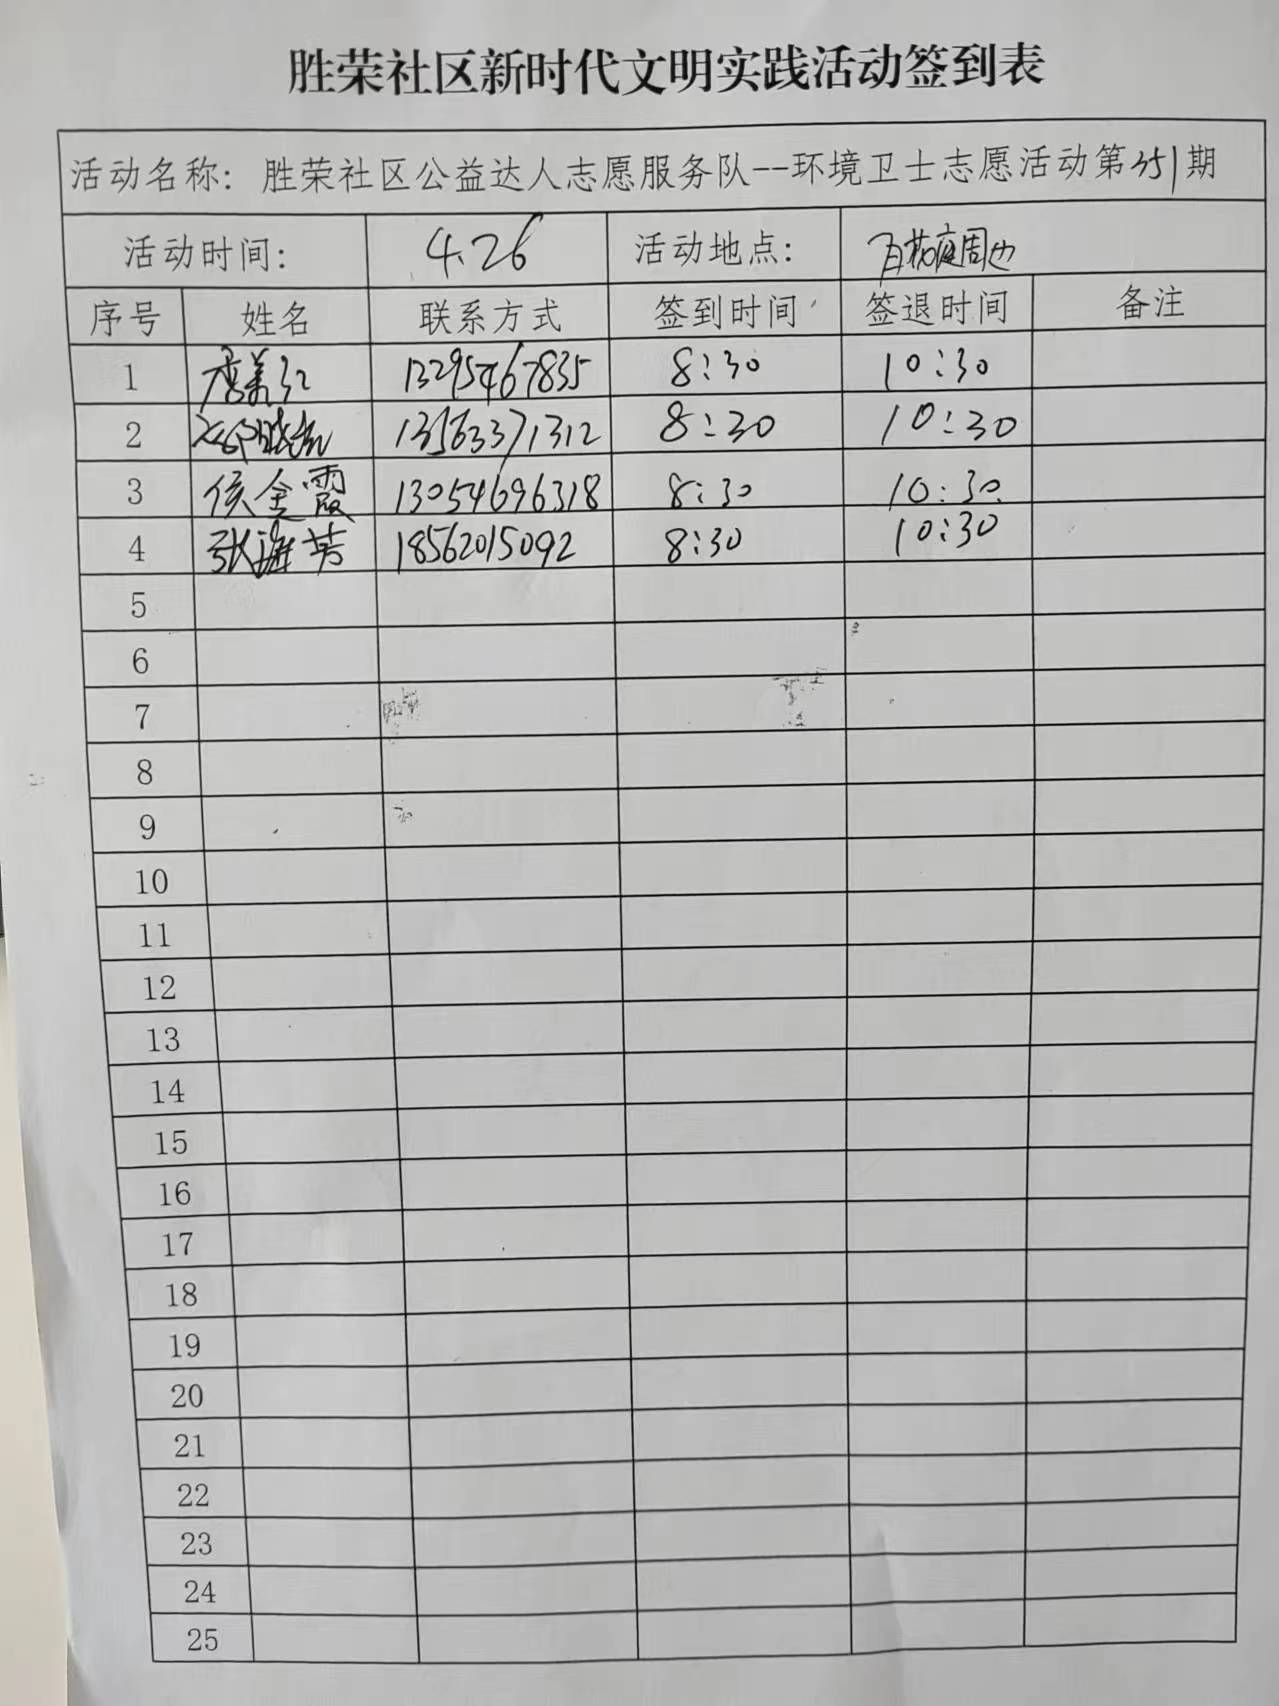 胜荣社区新时代文明实践活动签到表
活动名称：胜荣社区公益达人志愿服务队--环境卫士志愿活动第351期
活动时间： 4.26 活动地点： 百花庭周边
序号 姓名 联系方式 签到时间 签退时间 备注
1 唐美红 13295467835 8:30 10:30
2 13563371312 8:30 10:30
3 侯金霞 13054696318 8:30 10:30
4 张海芳 18562015092 8:30 10:30
5
6
7
8
9
10
11
12
13
14
15
16
17
18
19
20
21
22
23
24
25